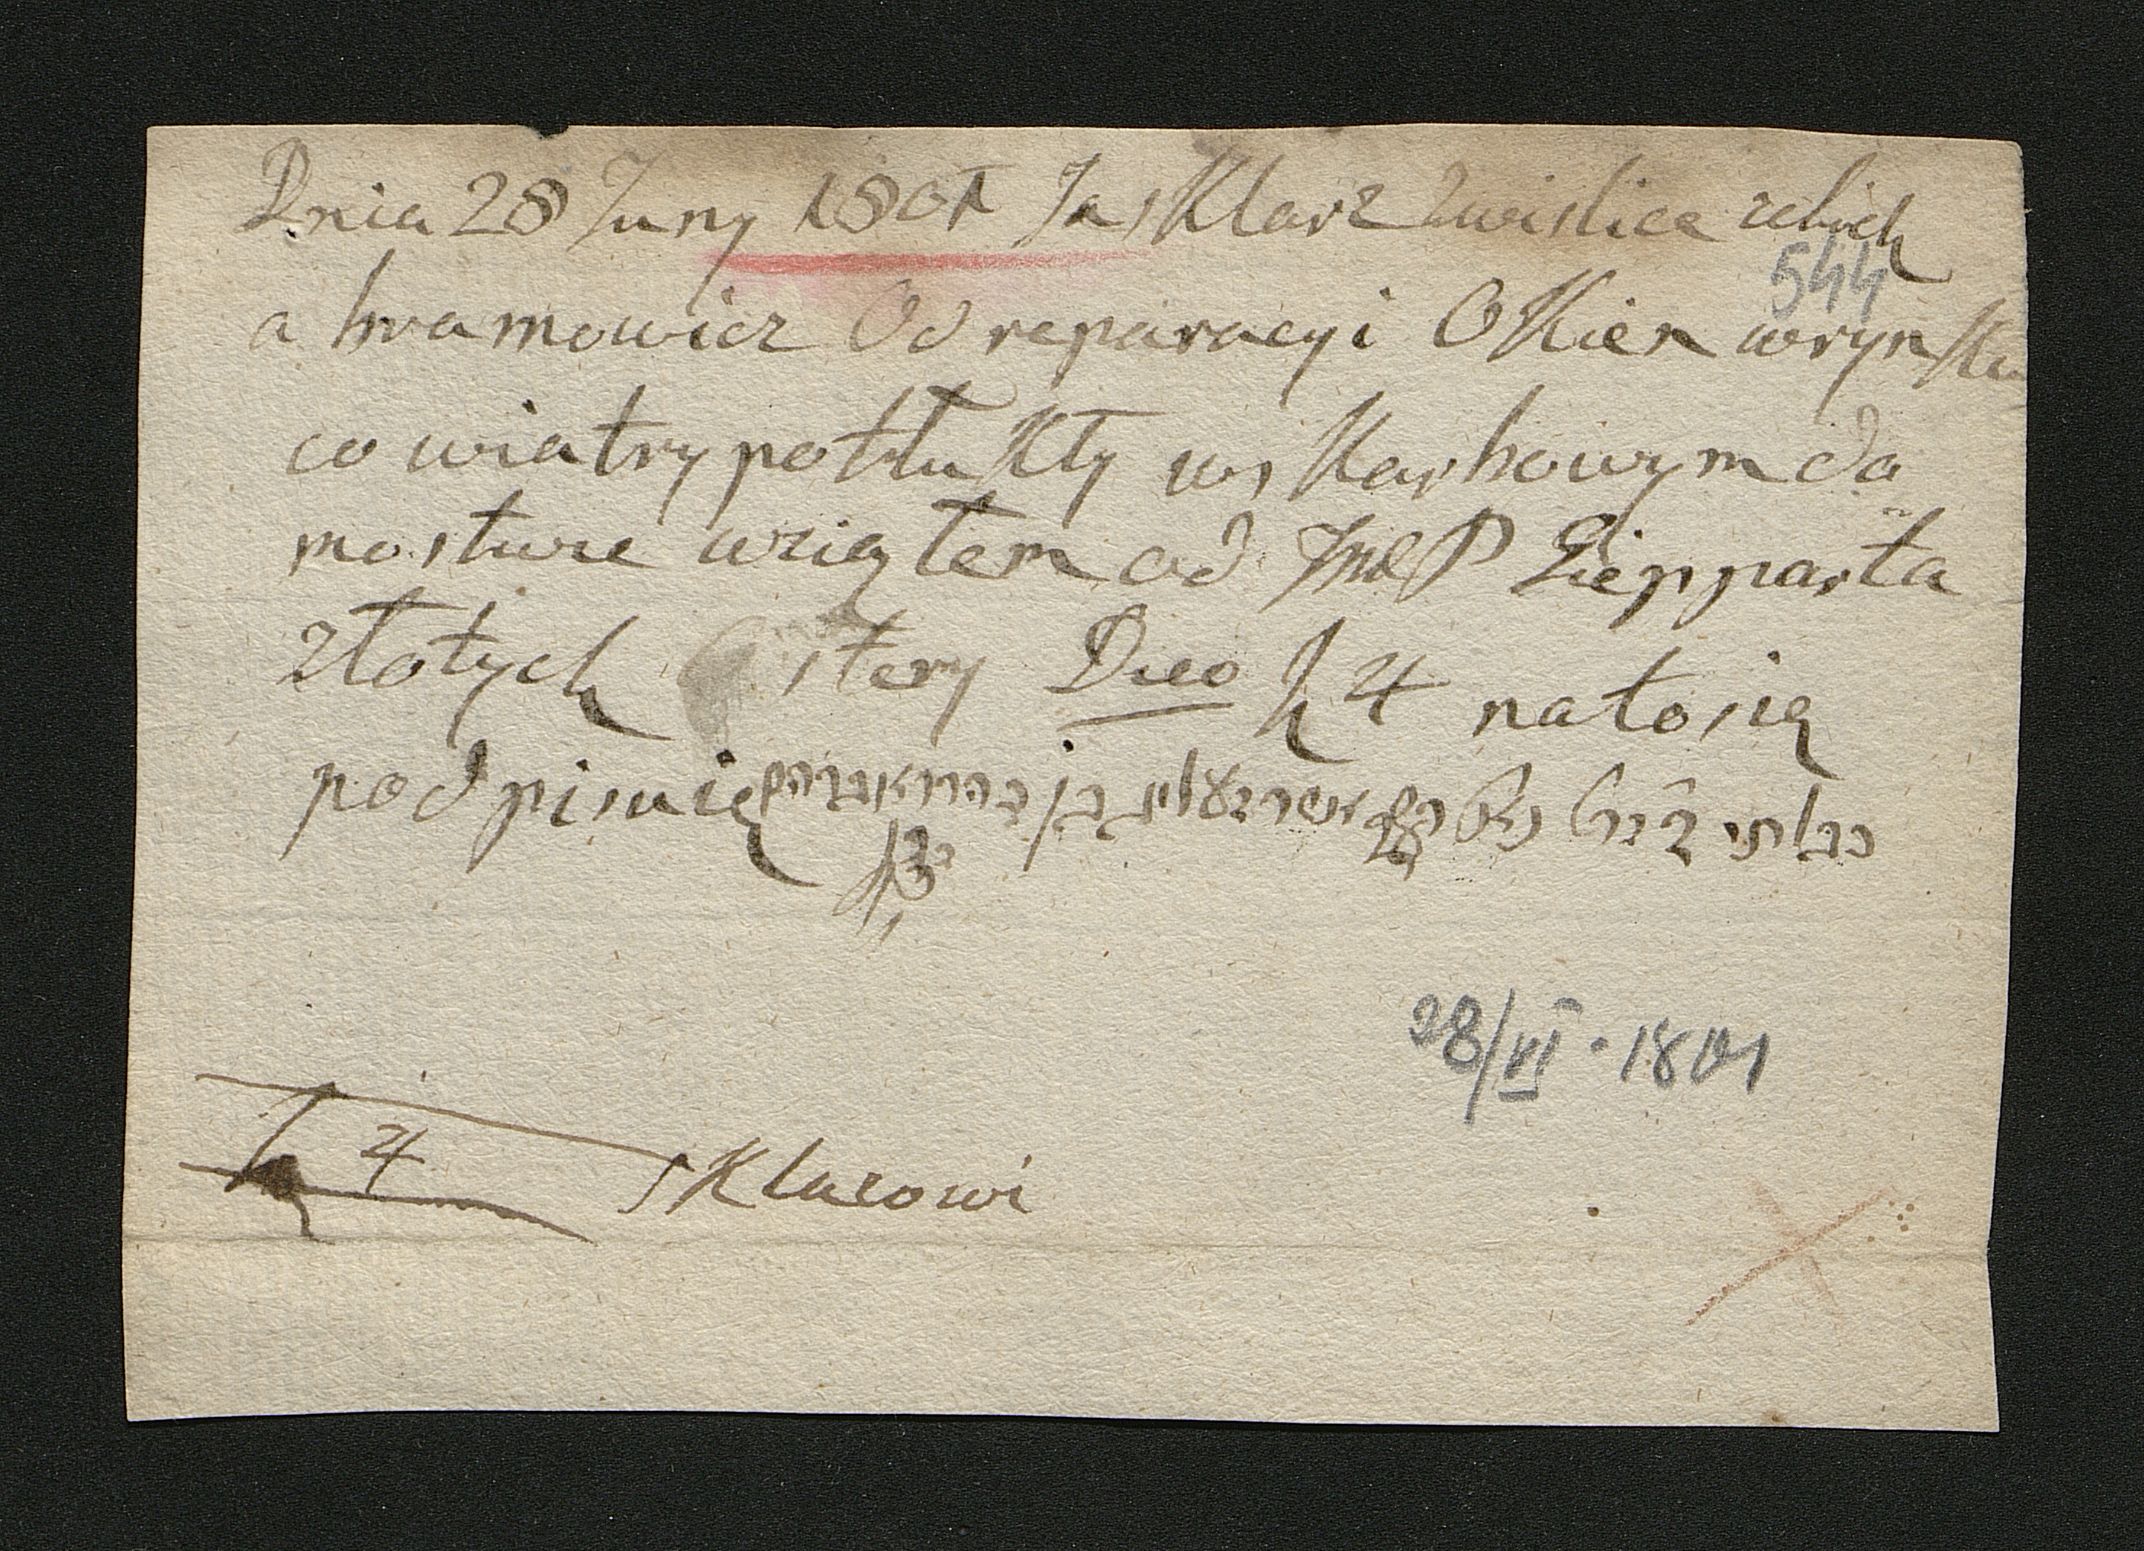 Dnia 28 Juny 1801 Ja sKlarz zwislice zelich
544
a bramowicz Od reparacyi OKien wrynKu
co wiatry potłuKły ws Karbowym do
mostwie wziąłem od JmćP Liepparta
złotych cztery Dico f 4 nato się
podpisuię
28/VI · 1801
f 4 sKlarowi